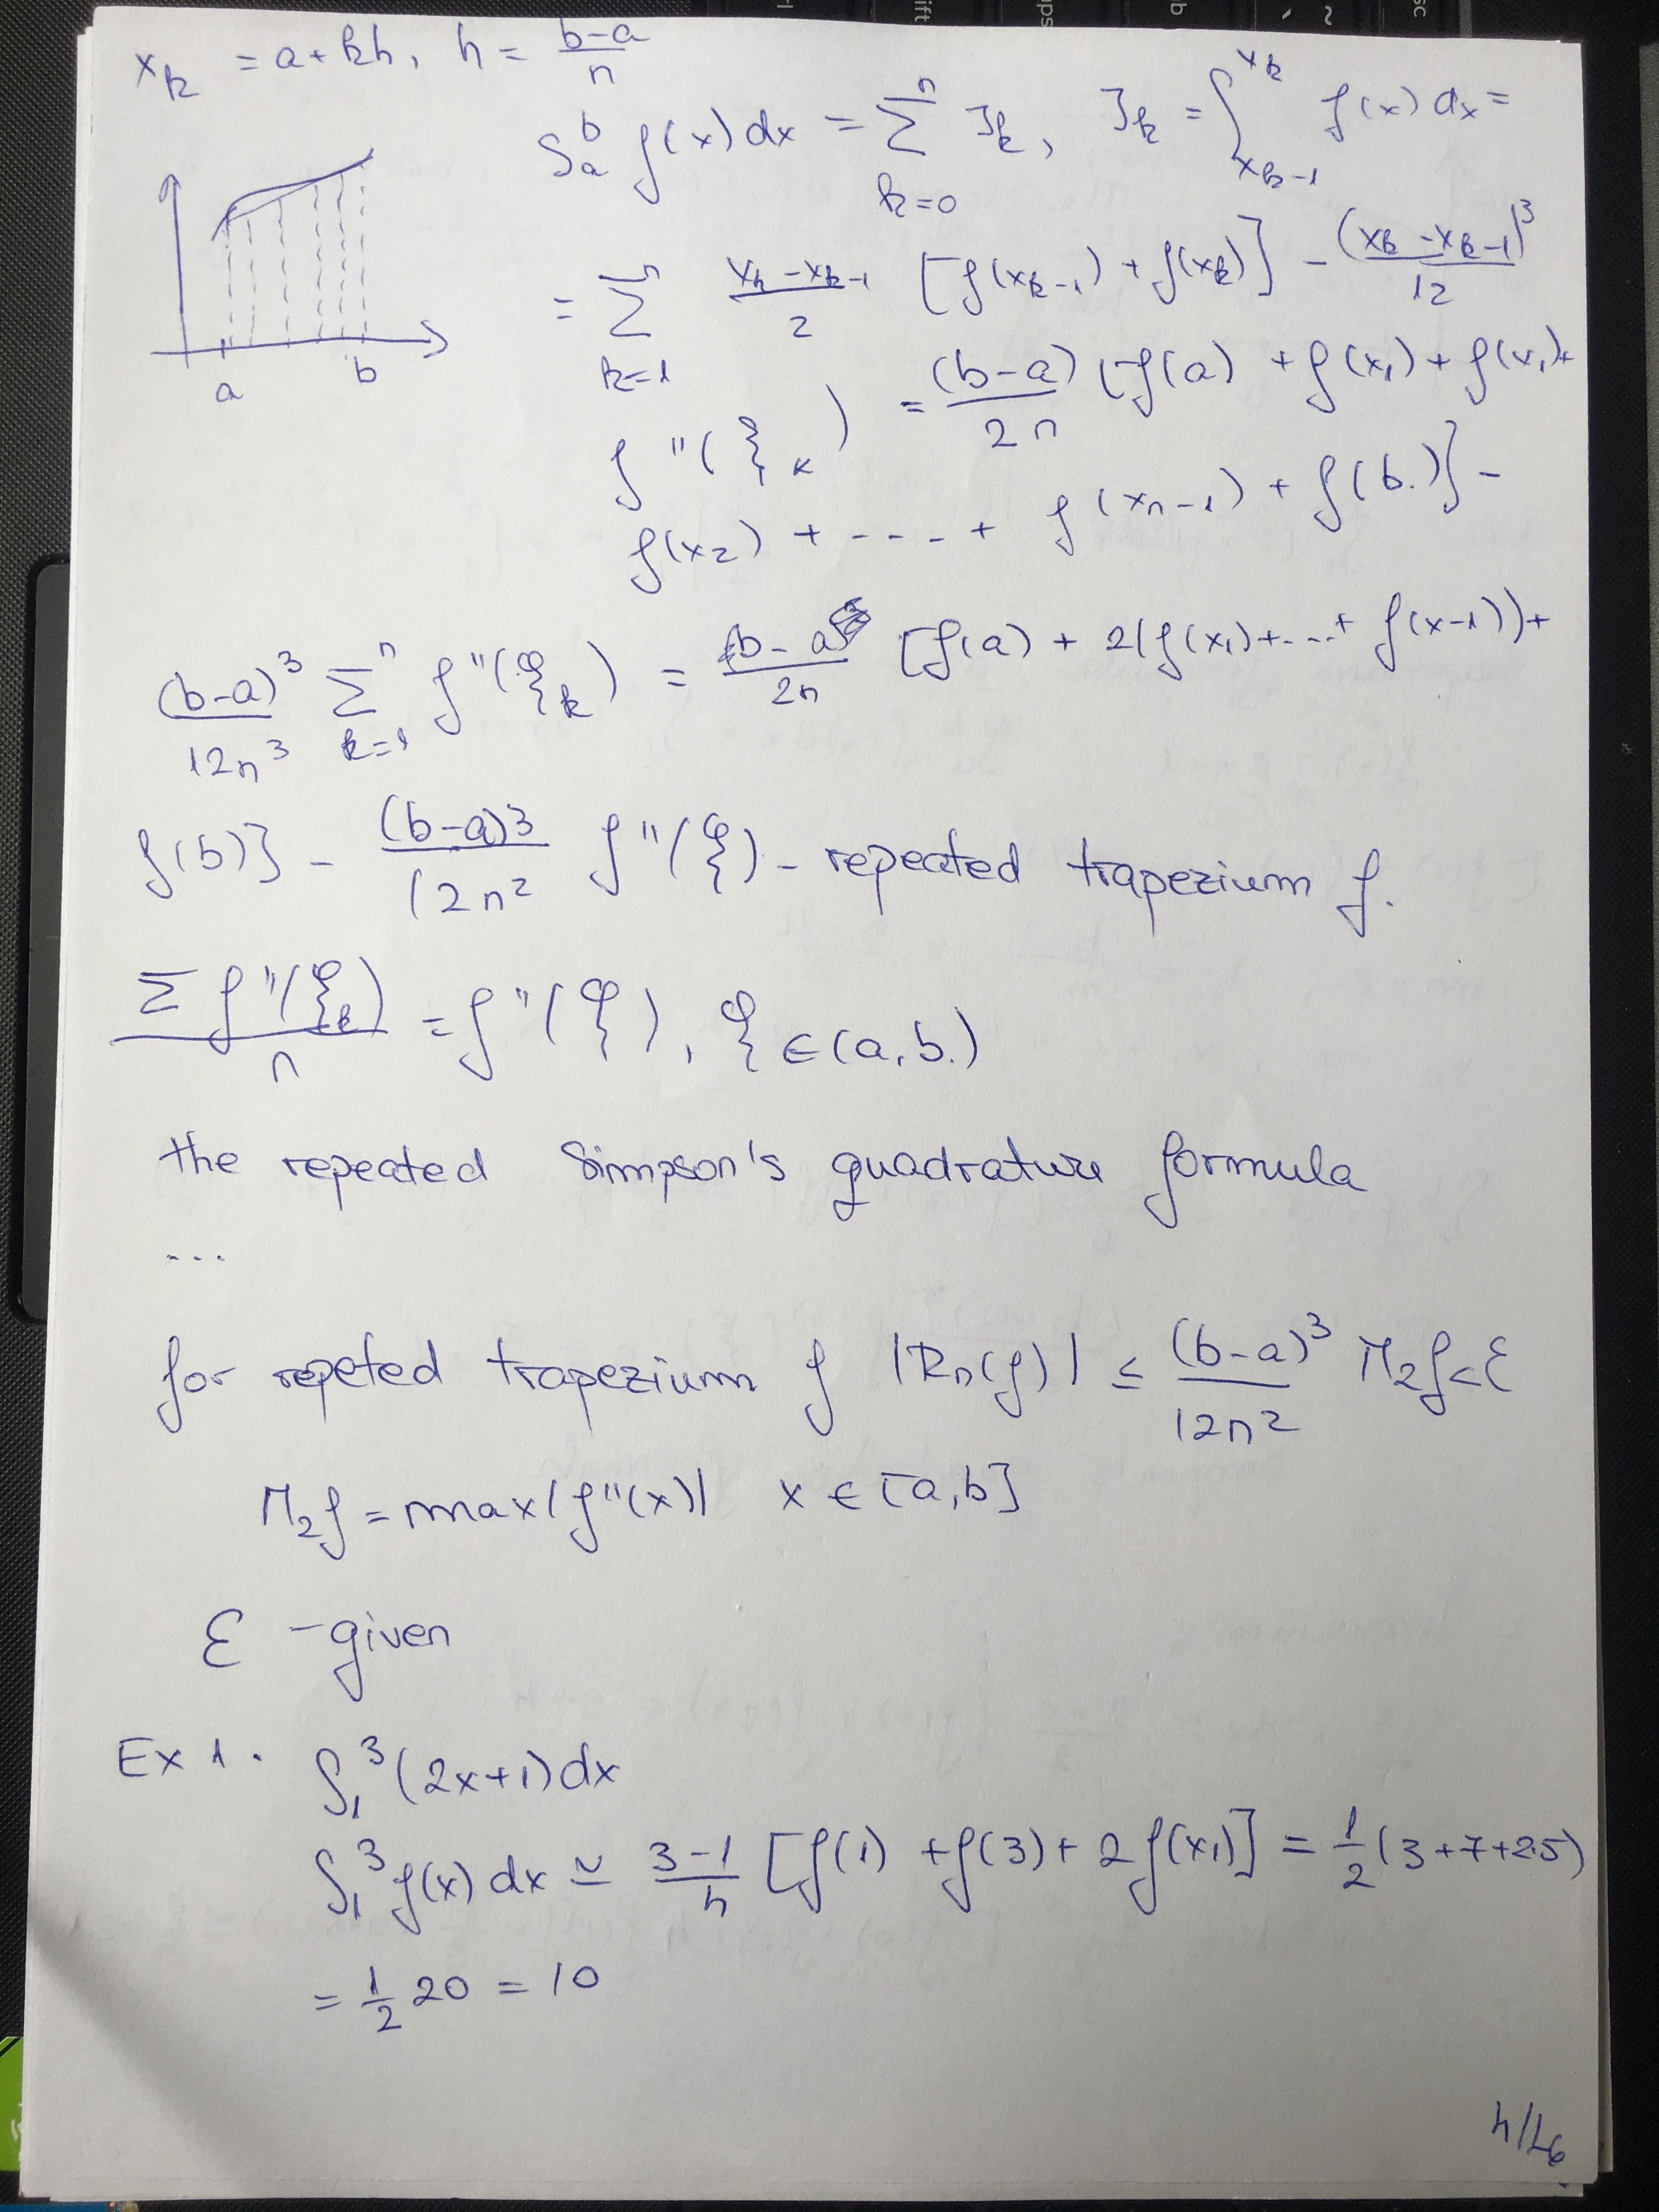 x_k = a + kh, h = (b-a)/n
S_a^b f(x) dx = Σ_{k=0}^n J_k, J_k = ∫_{x_{k-1}}^{x_k} f(x) dx =
= Σ_{k=1}^n (x_k - x_{k-1})/2 [f(x_{k-1}) + f(x_k)] - (x_k - x_{k-1})^3/12
a b
f''(ξ_k) = (b-a)/2n [f(a) + f(x_1) + f(x_1) +
f(x_2) + ---- + f(x_{n-1}) + f(b)] -
(b-a)^3/12n^3 Σ_{k=1}^n f''(ξ_k) = (b-a)/2n [f(a) + 2(f(x_1) + ... + f(x-1)) +
f(b)] - (b-a)^3/12n^2 f''(ξ) - repeated trapezium f.
Σ f''(ξ_k)/n = f''(ξ), ξ ∈ (a, b)
the repeated Simpson's quadrature formula
...
for repeted trapezium f |R_n(f)| ≤ (b-a)^3/12n^2 M_2f < ε
M_2f = max|f''(x)| x ∈ [a, b]
ε - given
Ex 1. ∫_1^3 (2x+1) dx
∫_1^3 f(x) dx ≃ (3-1)/h [f(1) + f(3) + 2f(x_1)] = 1/2 (3+7+2.5)
= 1/2 20 = 10
4/L6